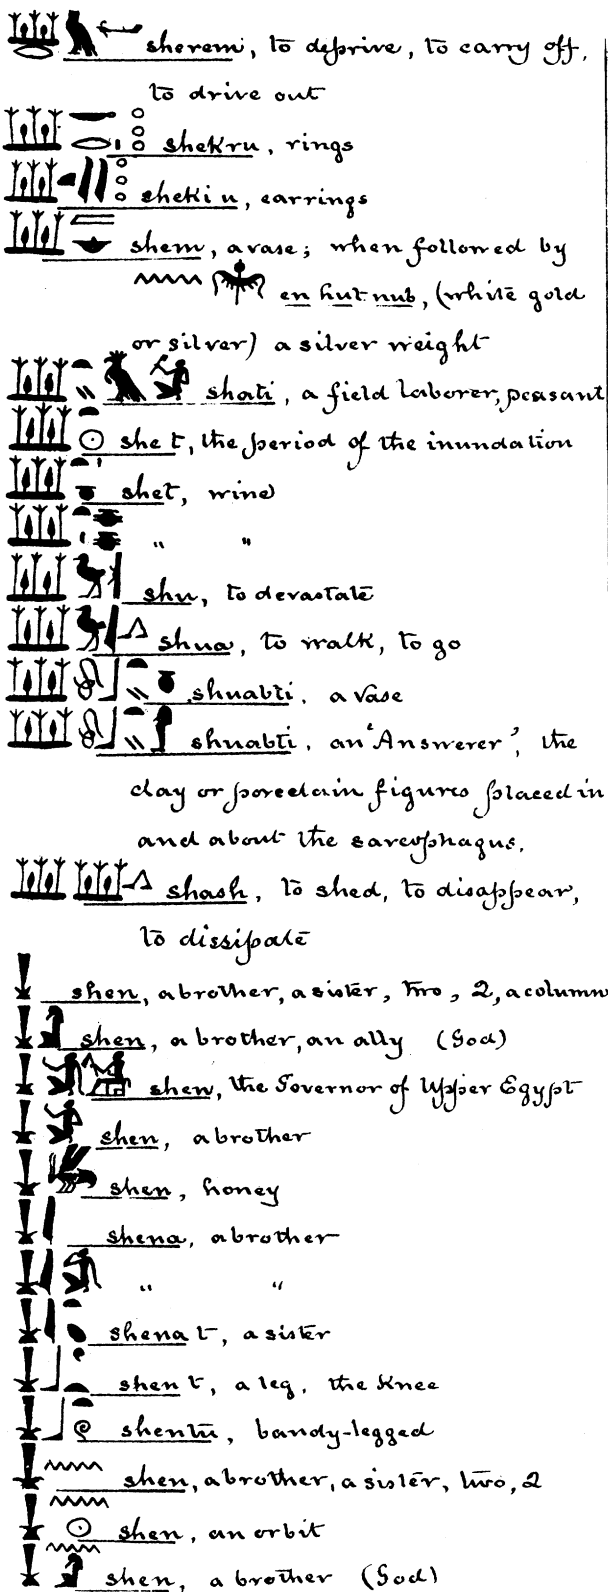 sherem, to deprive, to carry off,
to drive out
shekru, rings
shekiu, earrings
shem, a vase; when followed by
en hut nub, (white gold
or silver) a silver weight
shati, a field laborer, peasant
shet, the period of the inundation
shet, wine
" "
shu, to devastate
shua, to walk, to go
shuabti, a vase
shuabti, an "Answerer", the
clay or porcelain figures placed in
and about the sarcophagus.
shash, to shed, to disappear,
to dissipate
shen, a brother, a sister, two, 2, a column
shen, a brother, an ally (God)
shen, the Governor of Upper Egypt
shen, a brother
shen, honey
shena, a brother
" "
shenat, a sister
shent, a leg, the knee
shentu, bandy-legged
shen, a brother, a sister, two, 2
shen, an orbit
shen, a brother (God)